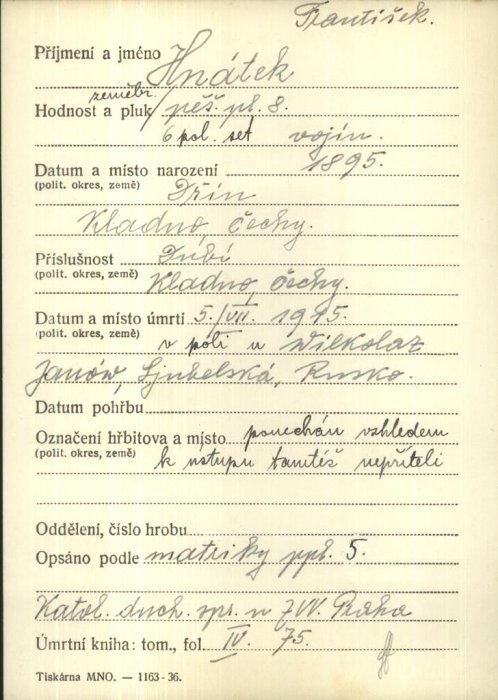 František.
Příjmení a jméno Hnátek
zeměbr.
Hodnost a pluk pěš. pl. 8.
6 pol. set vojín.
Datum a místo narození 1895.
(polit. okres, země) Dřín
Kladno, Čechy.
Příslušnost Dubí
(polit. okres, země) Kladno, Čechy.
Datum a místo úmrtí 5./VII. 1915.
(polit. okres, země) v poli u Wilkolaz
Janów, Ljubelská, Rusko.
Datum pohřbu
Označení hřbitova a místo ponechán vzhledem
(polit. okres, země) k ústupu tamtéž nepříteli
Oddělení, číslo hrobu
Opsáno podle matriky ppl. 5.
Katol. duch. spr. u ZVV. Praha
Úmrtní kniha: tom., fol. IV. 75.
Tiskárna MNO. — 1163-36.